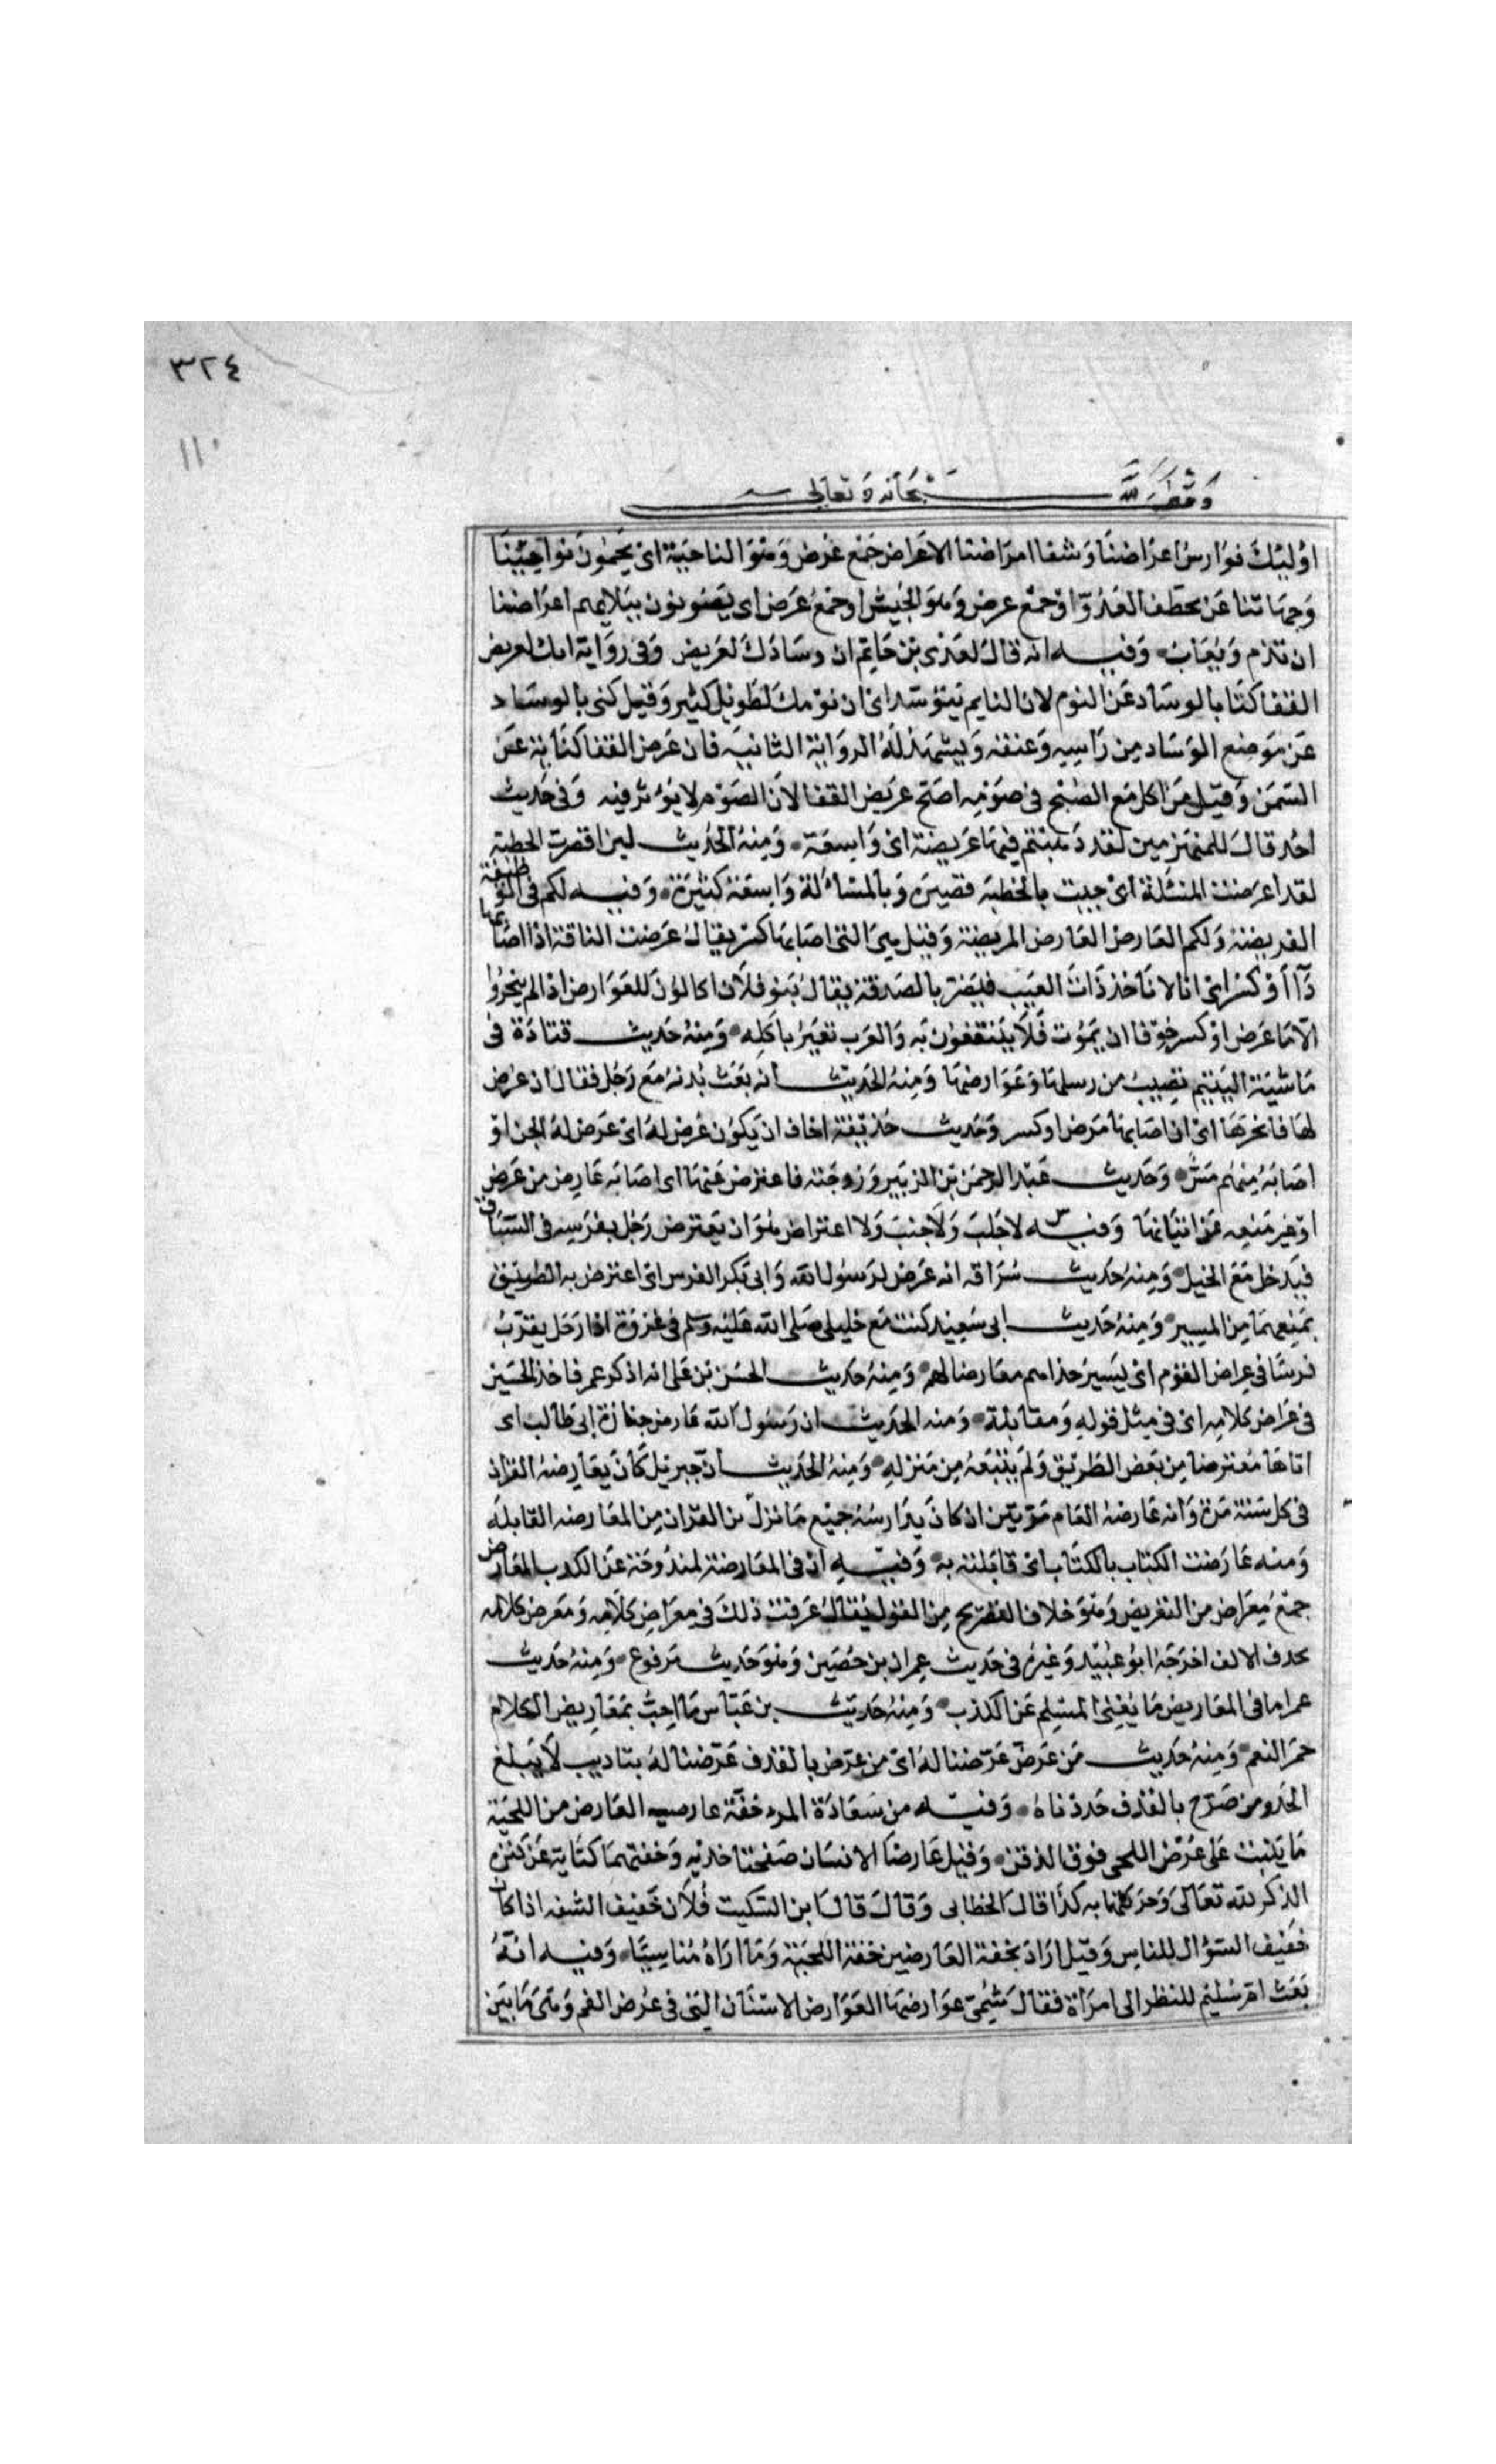 ٣٢٤
١١٠
وقف لله سبحانه وتعالى
اوليك فوارس اعراضنا وشفا امراضنا الاعراض جمع عرض وهو الناحية اى يحمون نواحينا
وجهاتنا عن تخطف العدو او جمع عرض وهو الجيش او جمع عرض اى يصونون ببلايهم اعراضنا
ان تذم وتعاب وفيه انه قال لعدى بن حاتم ان وسادك لعريض وفى رواية انك لعريض
القفا كنا بالوساد عن النوم لان النايم يتوسد اى ان نومك لطويل كثير وقيل كنى بالوساد
عن موضع الوساد من راسه وعنقه ويشهد له الرواية الثانية فان عرض القفا كناية عن
السمن وقيل من اكل مع الصبح فى صومه اصبح عريض القفا لان الصوم لا يؤثر فيه وفى حديث
احد قال للمنهزمين لقد ذهبتم فيها عريضة اى واسعة ومنه الحديث لين اقصرت الخطبة
لقد اعرضت المسئلة اى جيت بالخطبة قصيرة وبالمسئلة واسعة كثيرة وفيه لكم فى الوظيفة
الفريضة ولكم العارض العارض المريضة وقيل هى التى اصابها كسر يقال عرضت الناقة اذا اصابها
داآ او كسر اى انا لا ناخذ ذات العيب فيضر بالصدقة يقال بنو فلان اكالون للعوارض اذا لم ينحروا
الا ما عرض او كسر خوفا ان يموت فلا ينتفعون به والعرب تعير باكله ومنه حديث قتادة فى
ماشية اليتيم نصيب من رسلها وعوارضها ومنه الحديث انه بعث بدنه مع رجل فقال ان عرض
لها فانحرها اى ان اصابها مرض او كسر وحديث حذيفة اخاف ان يكون عرض له اى عرض له الجن او
اصابه منهم مس وحديث عبد الرحمن بن الزبير وزوجته فاعترض عنها اى اصابه عارض من مرض
او غير منعه عن اتيانها وفيه لا جلب ولا جنب ولا اعتراض هو ان يعترض رجل بفرسه فى السباق
فيدخل مع الخيل ومنه حديث سراقة انه عرض لرسول الله وابى بكر الفرس اى اعترض به الطريق
بمنعهما من المسير ومنه حديث ابى سعيد كنت مع خليلى صلى الله عليه وسلم فى غزوة اذا رجل يقرب
فرسا فى عراض القوم اى يسير حذاهم معارضا لهم ومنه حديث الحسن بن على انه ذكر عمر فاخذ الحسين
فى عراض كلامه اى فى مثل قوله ومقابلة ومنه الحديث ان رسول الله عارض جنازة ابى طالب اى
اتاها معترضا من بعض الطريق ولم يتبعه من منزله ومنه الحديث ان جبريل كان يعارضه القران
فى كل سنة مرة وانه عارضه العام مرتين ان كان يدارسه جميع ما نزل من القران من المعارضه القابله
ومنه عارضت الكتاب بالكتاب اى قابلته به وفيه ان فى المعارضة لمندوحة عن الكذب المعارض
جمع معراض من التعريض وهو خلاف التصريح من القول يقال عرفت ذلك فى معراض كلامه ومعرض كلامه
بحذف الالف اخرجه ابو عبيد وغيره فى حديث عمران بن حصين وهو حديث مرفوع ومنه حديث
عمر اما فى المعاريض ما يغنى المسلم عن الكذب ومنه حديث بن عباس ما احب بمعاريض الكلام
حمر النعم ومنه حديث من عرض عرضنا له اى من عرض بالقذف عرضنا له بتاديب لا يبلغ
الحد ومن صرح بالقذف حددناه وفيه من سعادة المرء خفة عارضيه العارض من اللحية
ما ينبت على عرض اللحى فوق الذقن وقيل عارضا الانسان صفحتا خديه وخفتهما كناية عن كثرة
الذكر لله تعالى وحركتهما به كذا قال الخطابى وقال قال ابن السكيت فلان خفيف الشفه اذا كان
خفيف السؤال للناس وقيل اراد بخفة العارضين خفة اللحية وما اراه مناسبا وفيه انه
بعث ام سليم للنظر الى امراة فقال شمى عوارضها العوارض الاسنان التى فى عرض الفم وهى ما بين